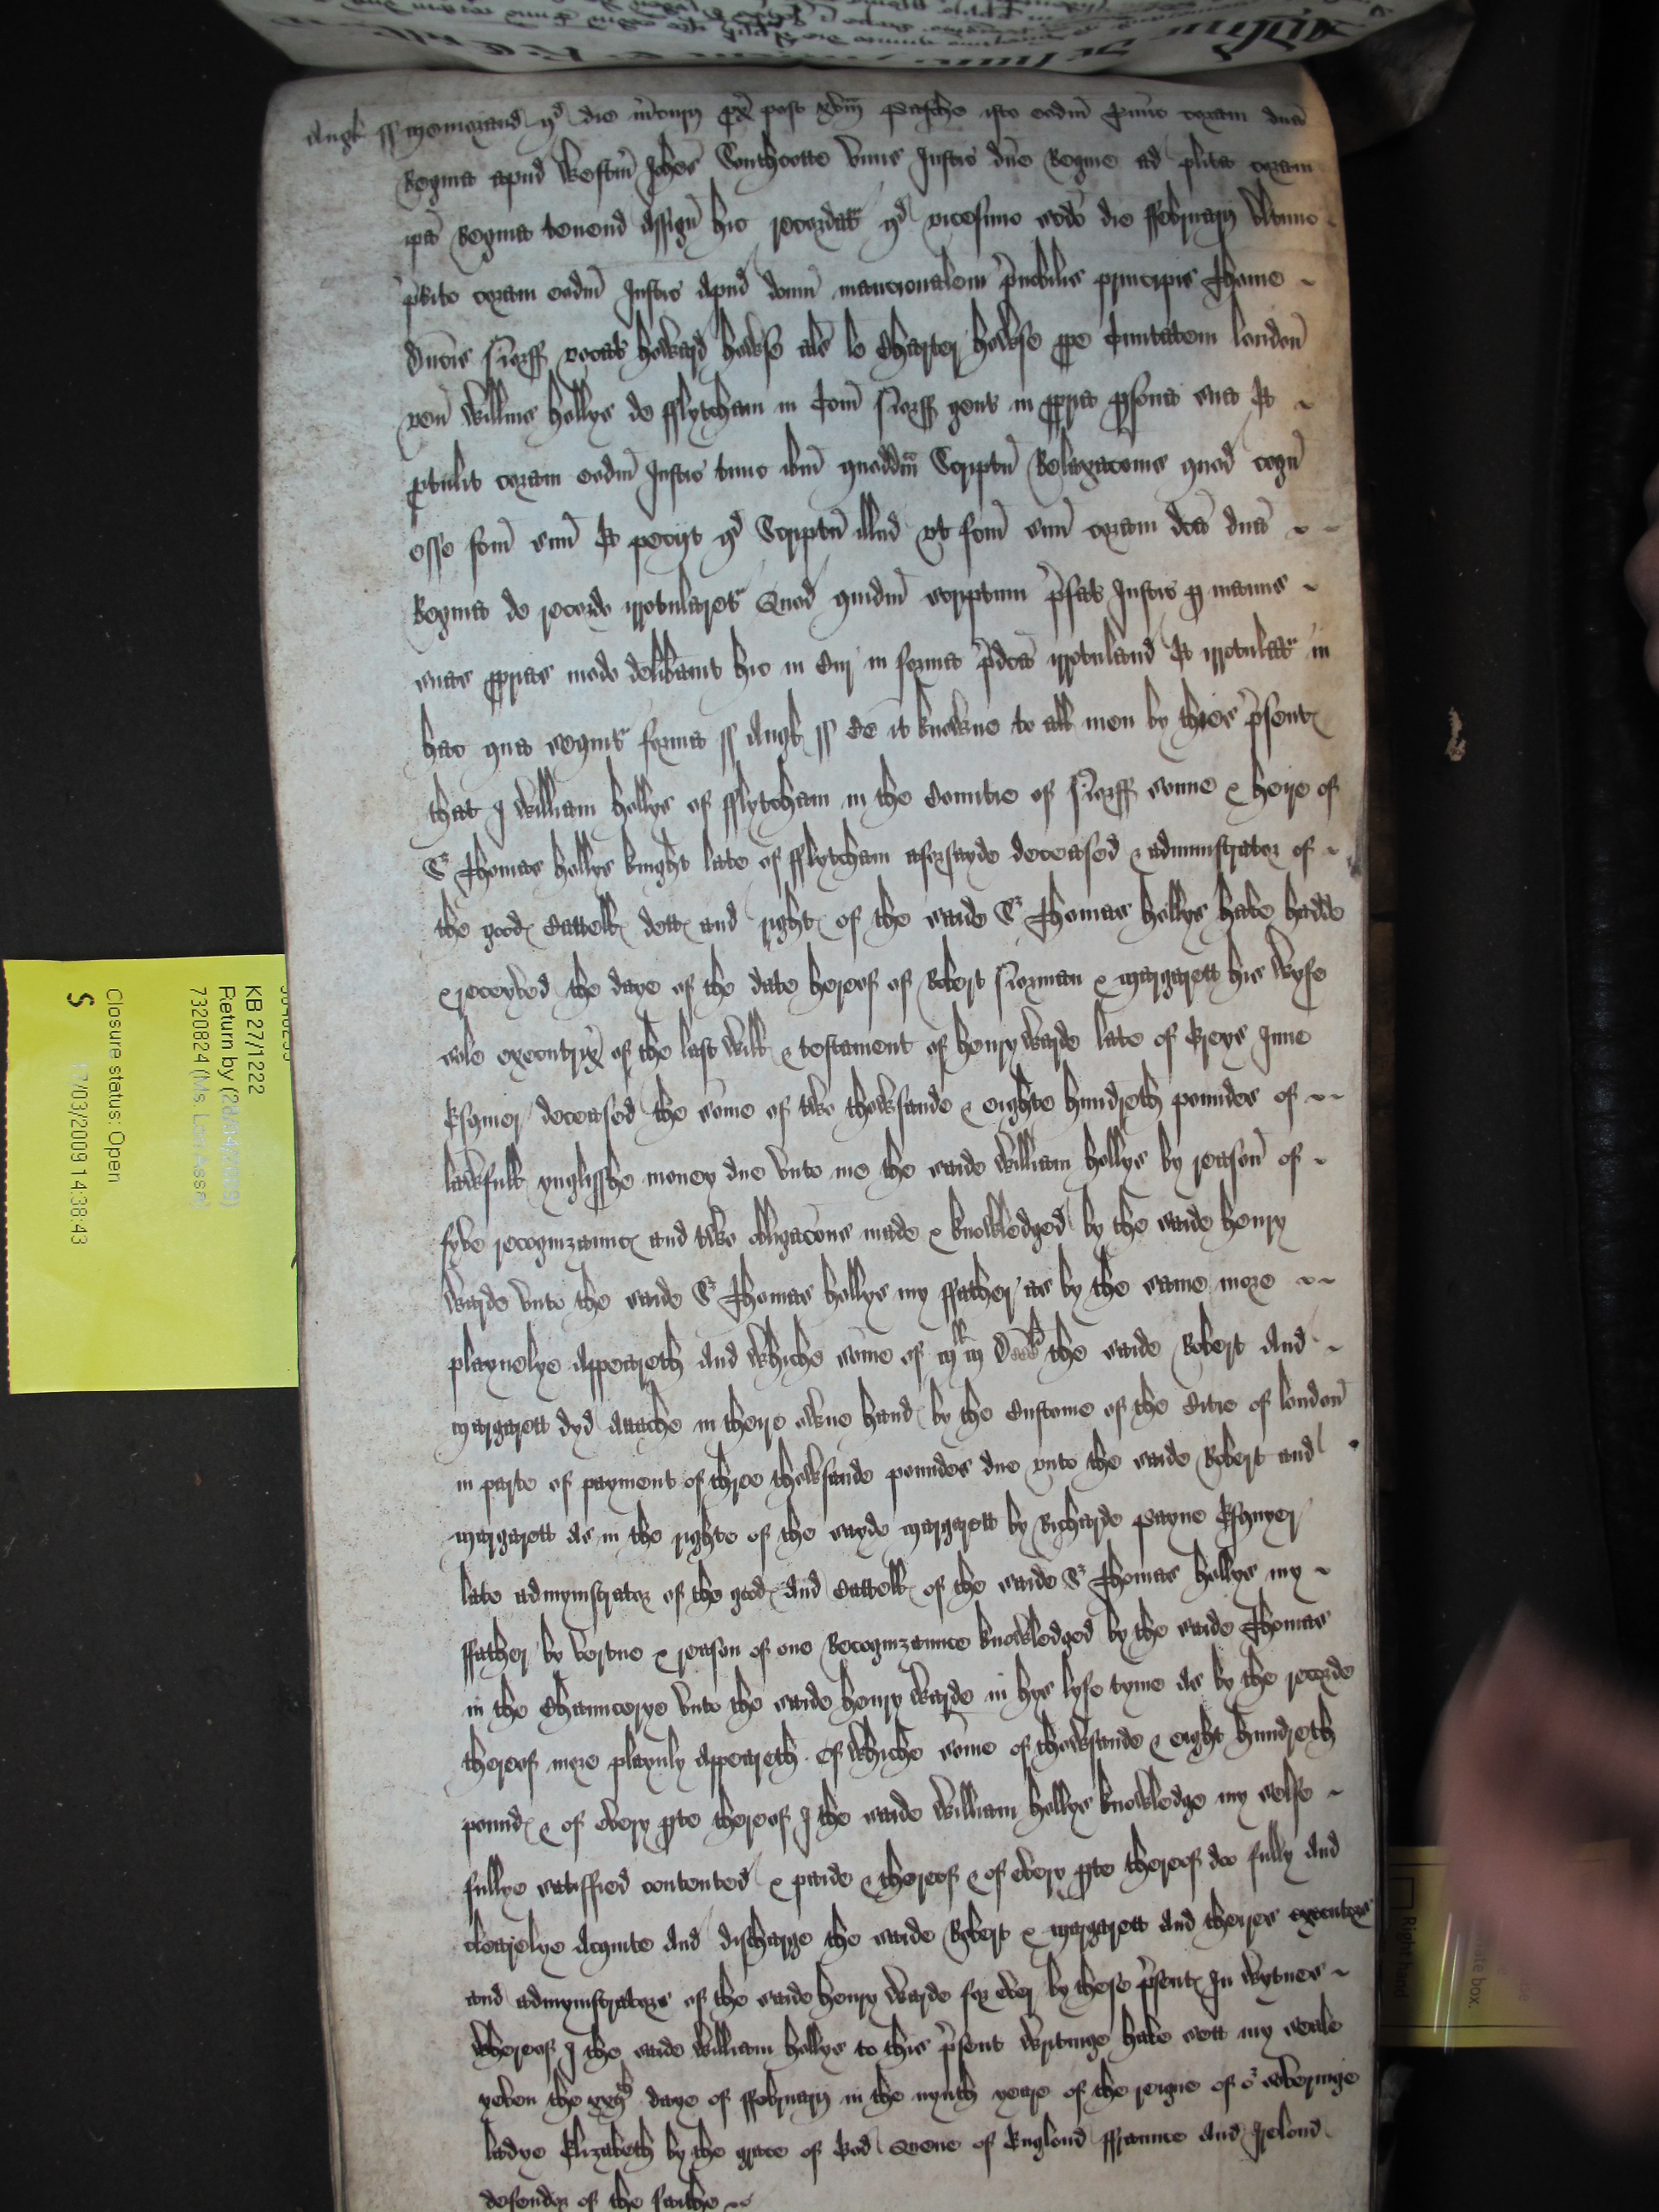 Angl ss Memorand qd die m̃curij px̃ post xvm̃ Pasche isto eodm̃ t̃mino coram dn̄a
Regina apud Westm̃ Johes Southcotte vnus Justic dn̄e Regine ad pl̃ita coram
ip̃a Regina tenend assign̄ hic recordat̃ qd vicesimo scdo die ffebruarij vltimo
p̃t̃ito coram eodm̃ Justic apud domũ mancionalem p̃nobilis principis Thome
Ducis Norff vocat̃ howard howse als le Charter howse ppe Ciuitatem london̄
ven̄ Willm̃s hollys de fflytcham in Com̃ Norff gent̃ in ppria psona sua Et
ptulit coram eodm̃ Justic tunc ibm̃ quoddm̃ Scriptũ Relaxacoñis quod cogn̄
esse fcm̃ suũ Et petijt qd Scriptũ illud vt fcm̃ suũ coram dc̃a dn̄a
Regina de recordo irrotularet̃ Quod quidm̃ scriptum p̃fat̃ Justic p manus
suas pprias modo delib̃auit hic in Cur̃ in forma p̃dc̃a irrotuland Et irrotulat̃ in
hac que sequit̃ forma ss Angl ss Be it knowne to all men by thies p̃sentꝭ
that I William hollys of fflytcham in the Countie of Norff sonne & heire of
Sr Thomas hollys knight late of fflytcham aforsayde deceased & administrator of
the goodꝭ Cattellꝭ dettꝭ and rightꝭ of the saide Sr Thomas hollys haue hadde
& receyved the daye of the date hereof of Robert Norman & Margarett his wyfe
sole executrix of the last will & testament of henry Warde late of Greys Inne
Esquier deceased the som̃e of two thowsande & eighte hundreth poundes of
lawfull ynglisshe money due vnto me the saide William hollys by reason̄ of
fyve recognizauncꝭ and two obligacoñs made & knowledged by the saide henry
Warde vnto the saide Sr Thomas hollys my ffather as by the same more
playnelye appeareth And whiche som̃e of the saide Robert And
Margarett dyd attache in theire owne handꝭ by the Custome of the Citie of london̄
in parte of payment of three thowsande poundes due vnto the saide Robert and
Margarett as in the righte of the sayde Margarett by Richarde Payne Esquyer
late admynistrator of the goodꝭ And Cattellꝭ of the saide Sr Thomas hollys my
ffather by vertue & reason of one Recognizaunce knowledged by the saide Thomas
in the Chauncerye vnto the saide henry Warde in hys lyfe tyme As by the recorde
thereof more playnly appeareth Of whiche som̃e of thowsande & eight hundreth
poundꝭ & of every pte thereof I the saide William hollys knowledge my selfe
fullye satisfied contented & paide & thereof & of every pte thereof doo fully And
clearelye Acquite And discharge the saide Robert & Margarett And theires executors
and admynistrators of the saide henry Warde for ever by these p̃sentꝭ In wytnes
whereof I the saide William hollys to this p̃sent writinge haue sett my seale
yeven the daye of ffebruary in the nynth yeare of the reigne of or soveringe
ladye Elizabeth by the grace of God Quene of England ffraunce And Ireland
defendor of the faithe
KB 27/1222
Return by (28/04/2009)
7320824
Closure status: Open
S
17/03/2009 14:38:43
Right hand